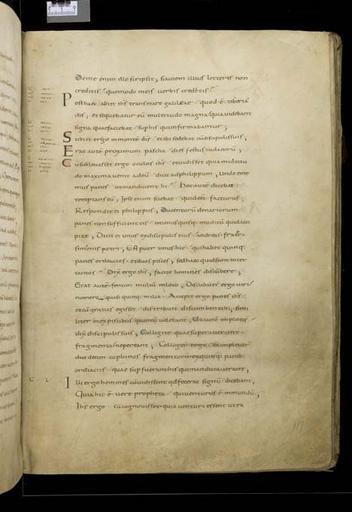 De me enim ille scripsit; si autem illius litteris non
creditis; quomodo meis verbis creditis;
Post haec abiit ihs trans mare galileae quod ē tiberia
dis; et sequebatur eū multitudo magna quia videbant
signa quae faciebat sup his qui infirmabantur;
Subiit ergo in monte ihs et ibi sedebat cū discipulis suis;
Erat autē proximum pascha dies festus iudaeorū;
Cū sublevasset ergo oculos ihs et vidisset quia multitu
do maxima venit ad eū dicit ad philippum; Unde eme
mus panes ut manducent hi; Hoc autē dicebat
temptans eū; Ipse enim sciebat quid eēt facturus;
Respondit ei philippus; Ducentorū denariorum
panes non sufficiunt eis ut unus quisq; modicū quid acci
piat; Dicit ei unus ex discipulis eius andreas frater
simonis petri; Est puer unus hic qui habet quinq;
panes ordiacios et duos pisces; sed haec quid sunt inter
tantos; Dix ergo ihs; facite homines discumbere;
Erat autē fenum multū in loco; Discubuer ergo viri
numero quasi quinq; milia; Accepit ergo panes ihs
et cū gratias egisset distribuit discumbentibus; simi
liter et ex piscibus quantū volebant; Ut autem impleti s
dix discipulis suis; Colligite quae superaverunt
fragmenta ne pereant; Collegerunt ergo et impleverunt
duodecim cophinos fragmentorū ex quinq; panib
ordiaciis quae superfuerunt his qui manducaverunt;
Illi ergo homines cū vidissent qd fecerat signū dicebant;
Quia hic ē vere propheta qui venturus ē in mundū;
Ihs ergo cū cognovisset quia venturi essent ut ra